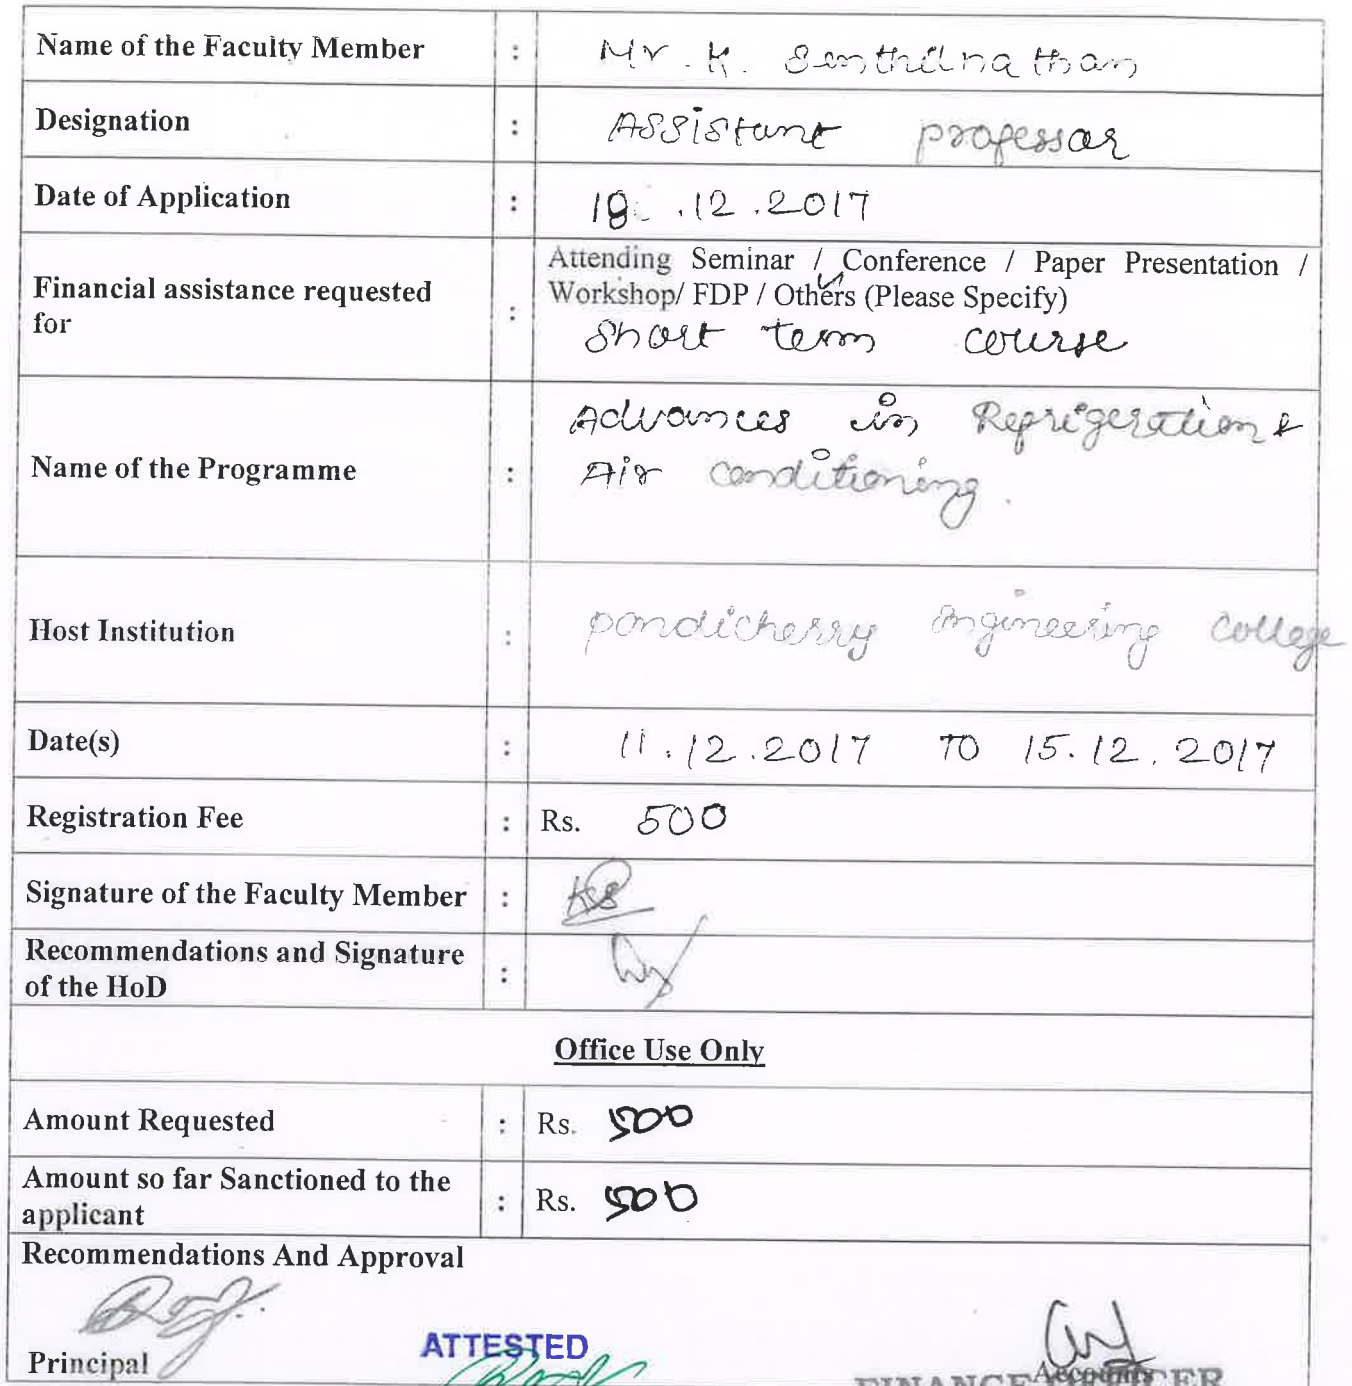 Name of the Faculty Member : Mr. K. Senthilnathan
Designation : Assistant professor
Date of Application : 18.12.2017
Financial assistance requested for : Attending Seminar / Conference / Paper Presentation /
Workshop/ FDP / Others (Please Specify)
Short term course
Name of the Programme : Advances in Refrigeration &
Air conditioning.
Host Institution : pondicherry Engineering College
Date(s) : 11.12.2017 TO 15.12.2017
Registration Fee : Rs. 500
Signature of the Faculty Member :
Recommendations and Signature
of the HoD :
Office Use Only
Amount Requested : Rs. 500
Amount so far Sanctioned to the
applicant : Rs. 500
Recommendations And Approval
ATTESTED
Principal Accounts
FINANCE OFFICER